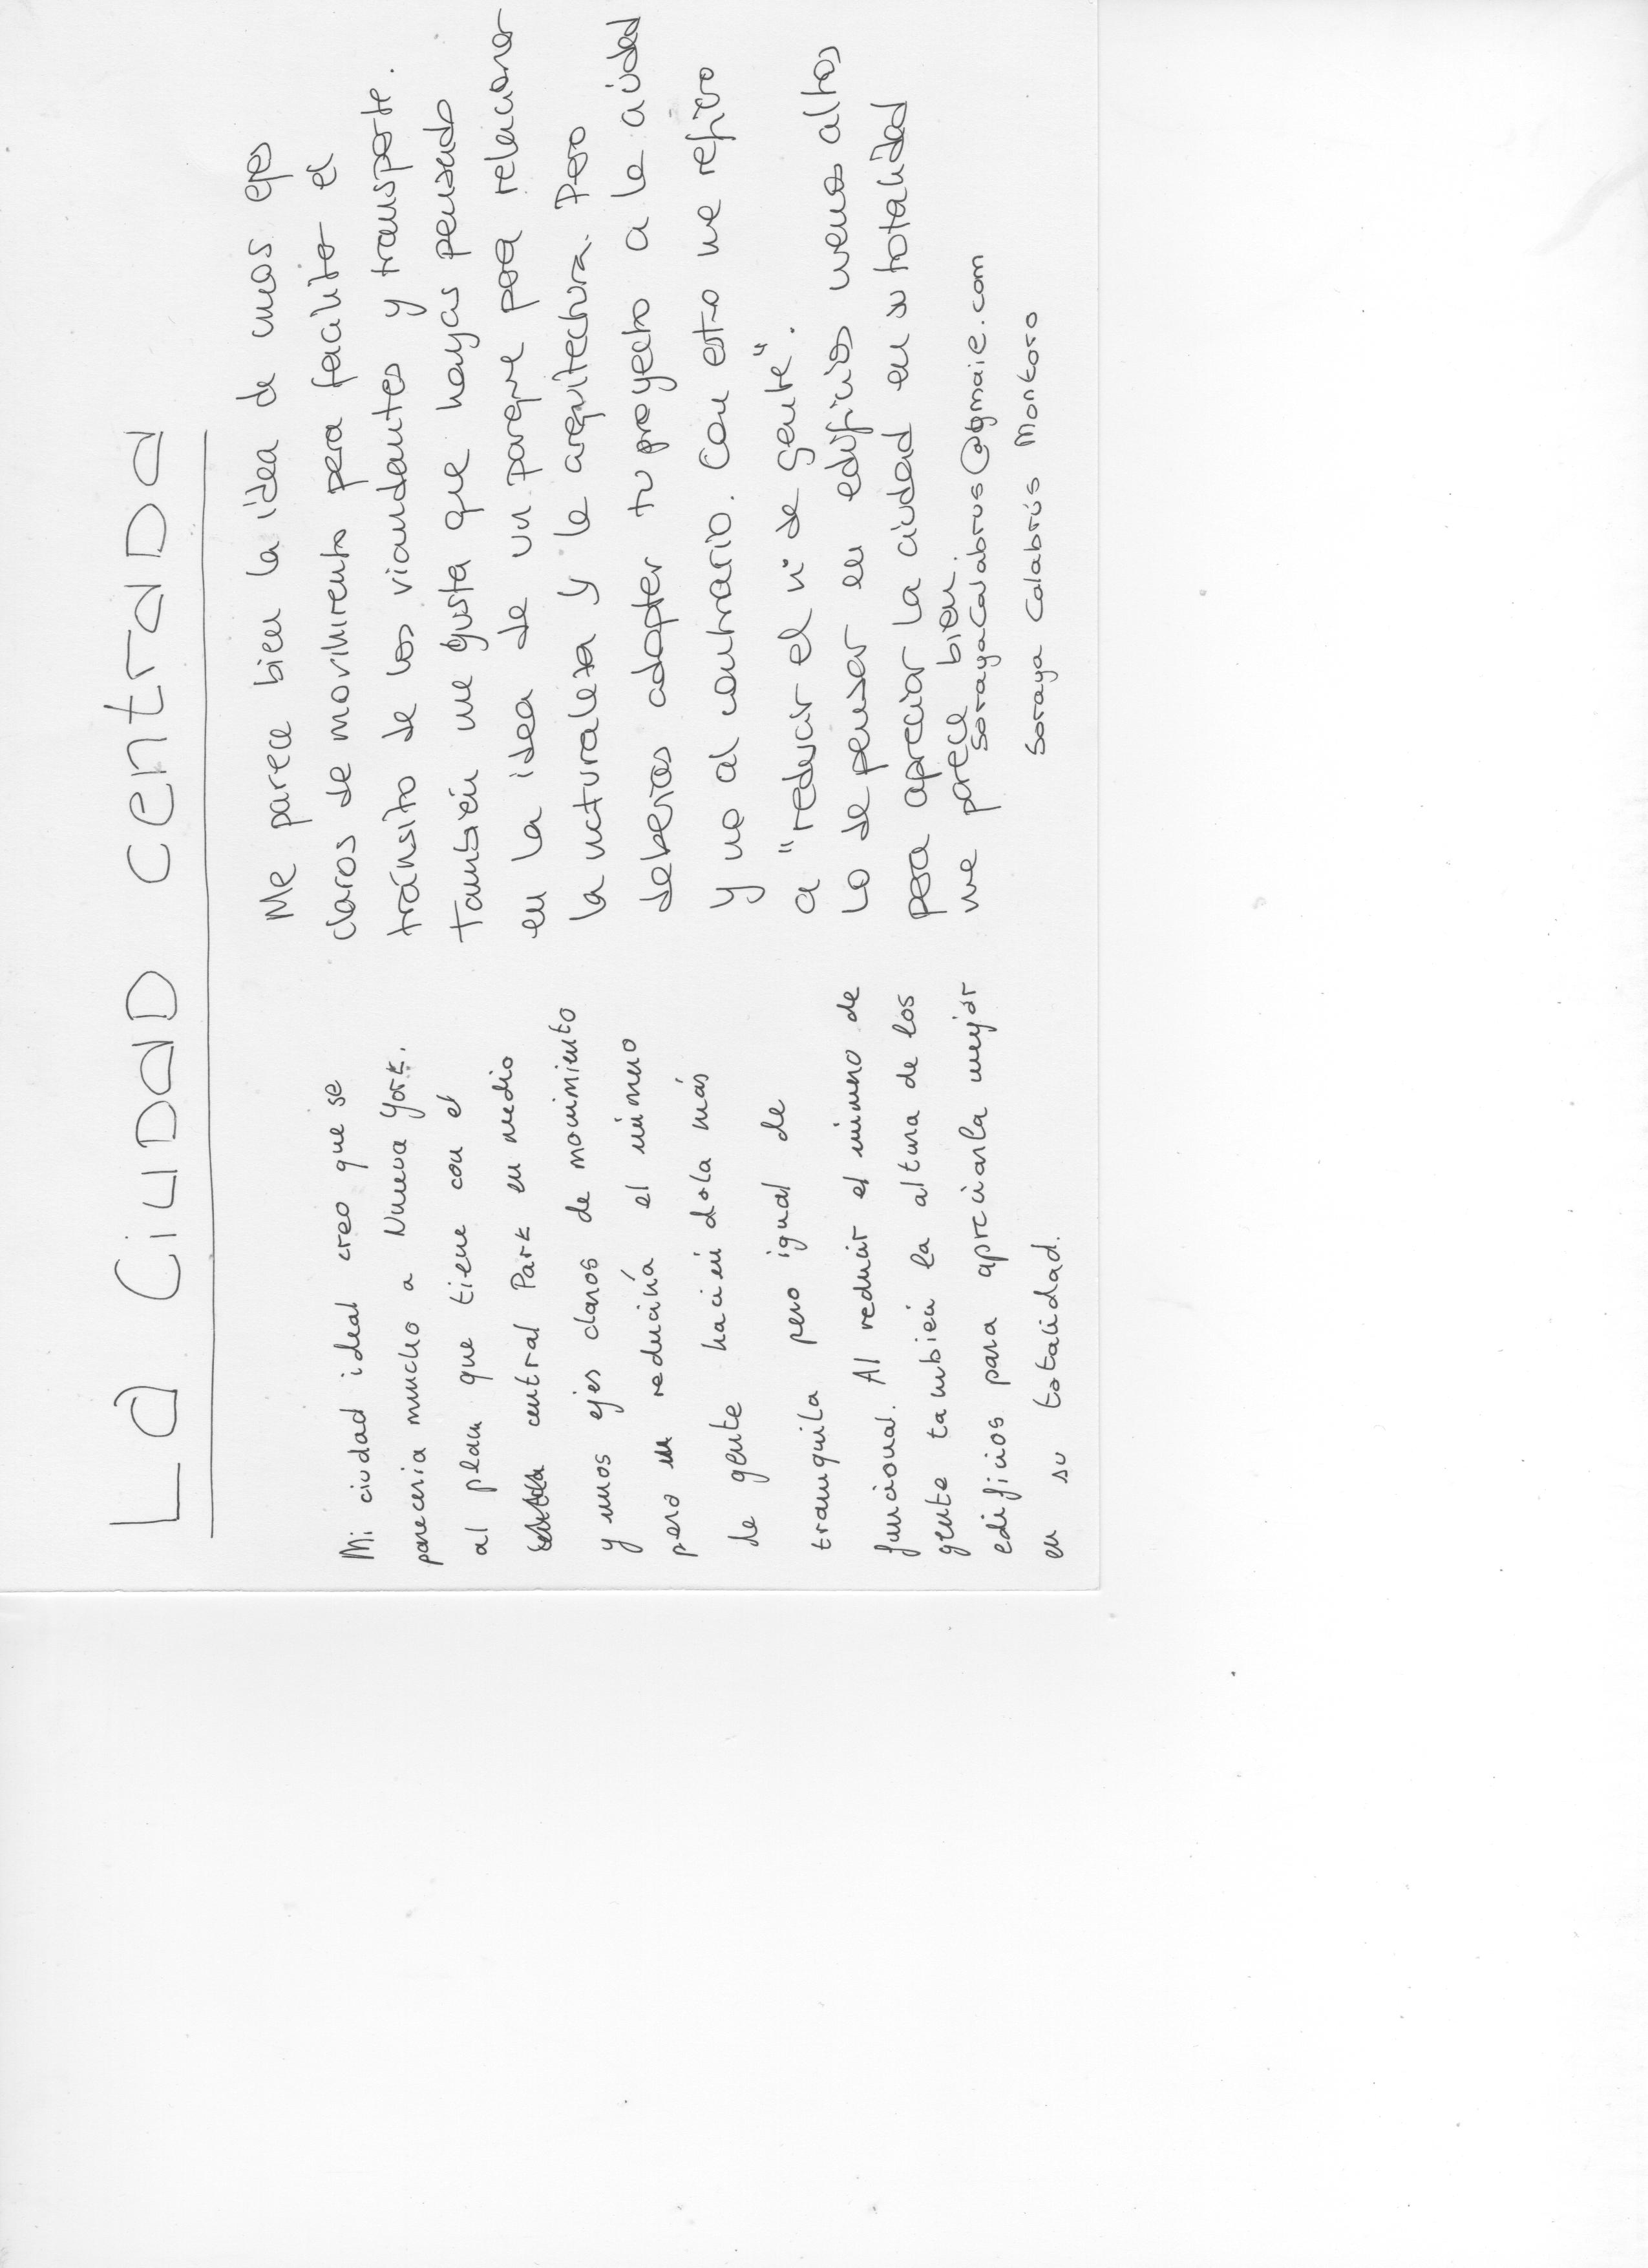 La CiUDaD CentraDa
Mi ciudad ideal creo que se
pareceria mucho a Nueva York.
al plan que tiene con el
central Park en medio
y unos ejes claros de movimiento
pero reduciría el número
de gente haciéndola más
tranquila pero igual de
funcional. Al reducir el número de
gente también la altura de los
edificios para apreciarla mejor
en su totalidad.
Me parece bien la idea de unos ejes
claros de movimiento para facilitar el
tránsito de los viandantes y transporte.
También me gusta que hayas pensado
en la idea de un parque para relacionar
la naturaleza y la arquitectura. Pero
deberías adapter tu proyecto a la ciudad
y no al contrario. Con esto me refiero
a "reducir el nº de gente".
Lo de pensar en edificios menos altos
para apreciar la ciudad en su totalidad
me parece bien.
SorayaCalabrus@gmaie.com
Soraya Calabrús Montoro